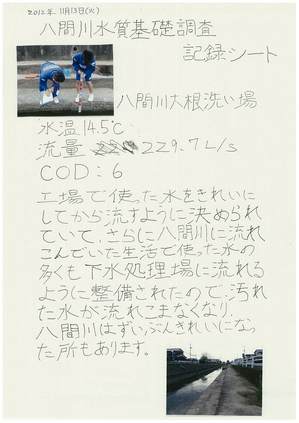 2012年 11月13日(火)
八間川水質基礎調査
記録シート
八間川大根洗い場
水温14.5℃
流量 229.7L/s
COD:6
工場で使った水をきれいに
してから流すように決められ
ていて、さらに八間川に流れ
こんでいた生活で使った水の
多くも下水処理場に流れる
ように整備されたので、汚れ
た水が流れこまなくなり、
八間川はずいぶんきれいになっ
た所もあります。